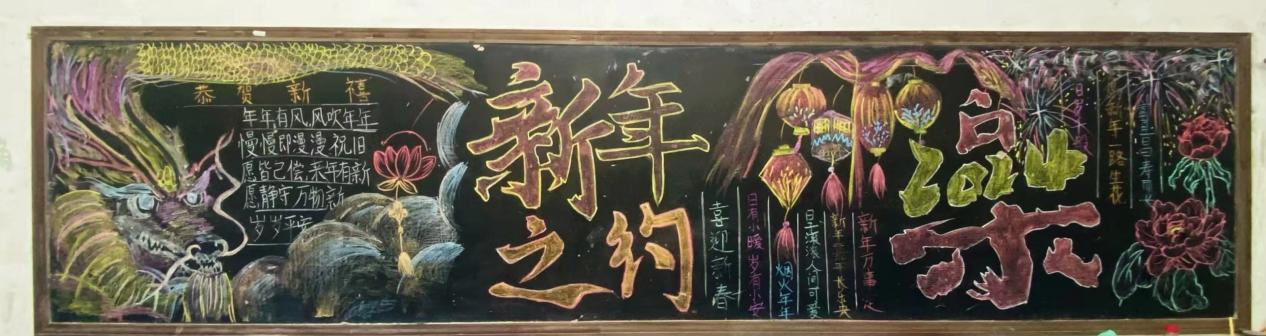 恭贺新禧
年年有风,风吹年年
慢慢即漫漫.祝旧
愿皆己偿.来年有新
愿静守万物新
岁岁平安
新年
之约
喜迎新春
日有小暖岁有小安
烟火年年
星滚滚人间可爱
新年
长乐未央
新年万事
2024
新年一路生花